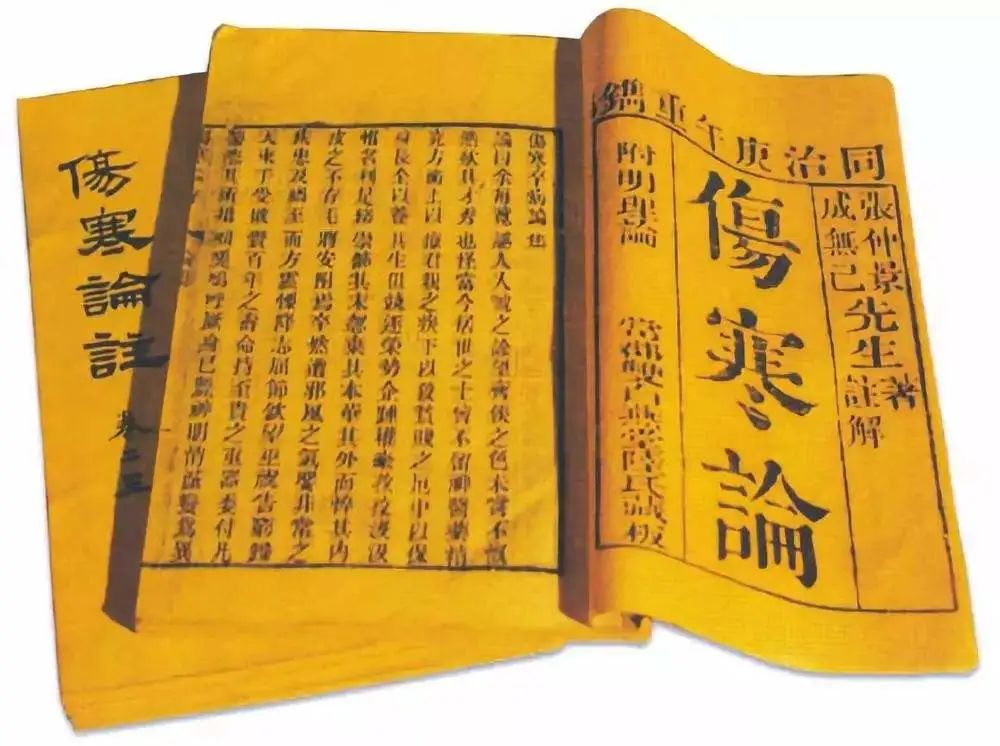 同治庚午重鐫
張仲景先生著
成無己註解
傷寒論
附明理論 常郡雙白燕堂陸氏藏板
傷寒卒病論集
論曰余每覽越人入虢之診望齊侯之色未嘗不慨
然歎其才秀也怪當今居世之士曾不留神醫藥精
究方術上以療君親之疾下以救貧賤之厄中以保
身長全以養其生但競逐榮勢企踵權豪孜孜汲汲
惟名利是務崇飾其末忽棄其本華其外而悴其內
皮之不存毛將安附焉卒然遭邪風之氣嬰非常之
疾患及禍至而方震慄降志屈節欽望巫祝告窮歸
天束手受敗賫百年之壽命持至貴之重器委付凡
醫恣其所措咄嗟嗚呼厥身已斃神明消滅變為異
傷寒論註
卷二三